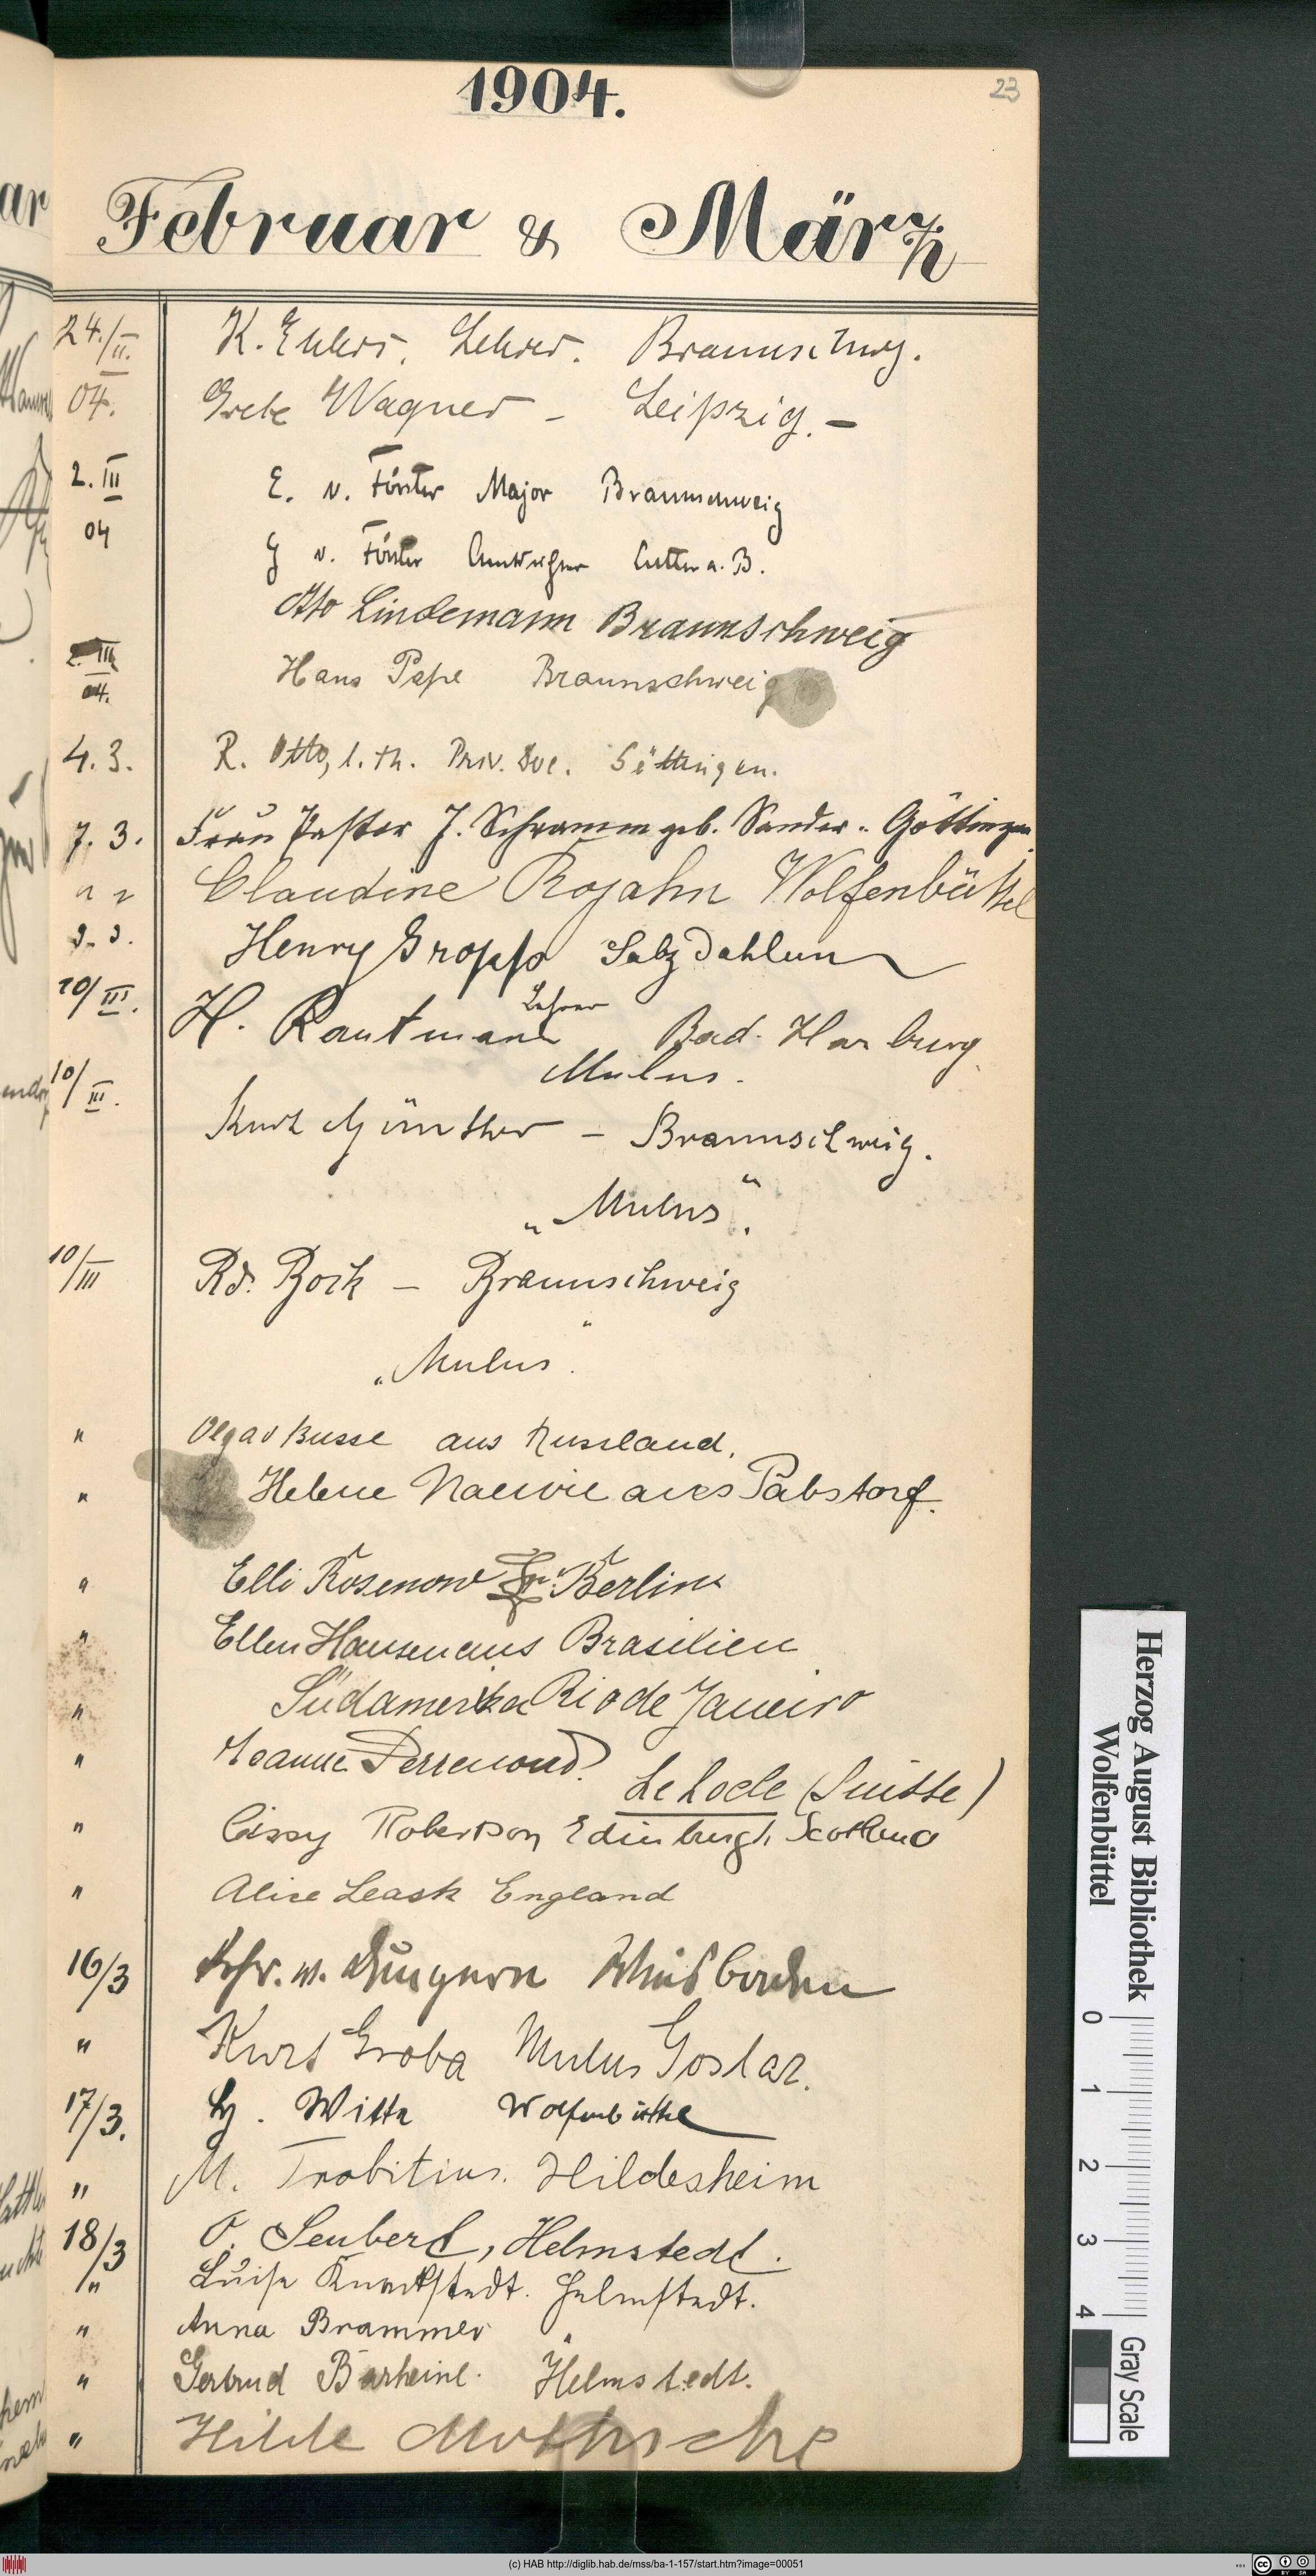 1904.
23
Februar & März
24./II. K. Ehlers, Lehrer. Braunschwg.
04. Grete Wagner – Leipzig. –
2. III E. v. Förster Major Braunschweig
04 G v. Förster Lutter a. B.
Otto Lindemann Braunschweig
2. III Hans Pape Braunschweig
04.
4. 3. R. Otto, l. th. Priv. Doc. Göttingen.
7. 3. Frau Pastor J. Schramm geb. Sander. Göttingen
" " Claudine Rojahn Wolfenbüttel
9. 3. Henry Gropp Salzdahlum
10/III. H. Rautmann Lehrer Bad. Harburg
Mulus.
10/III. Kurt Günther – Braunschweig.
„Mulus".
10/III Rd. Bock – Braunschweig
„Mulus".
" Olga v Busse aus Russland.
" Helene aus Pabstorf.
" Elli Rosenow Berlin
" Ellen Hansen aus Brasilien
" Südamerika Rio de Janeiro
" Jeanne Perrenoud. Le Locle (Suisse)
" Cissy Robertson Edinburgh Scotland
" Alice Leask England
16/3 Frhr. v. Dungern Wiesbaden
" Kurt Groba Mulus Goslar.
17/3. Witte Wolfenbüttel
" M. Trobitius. Hildesheim
18/3 O. Seubert, Helmstedt.
" Luise Knackstedt. Helmstedt.
" Anna Brammer "
" Gertrud Barheine. Helmstedt.
" Hilde
Herzog August Bibliothek
Wolfenbüttel
0 1 2 3 4
Gray Scale
(c) HAB http://diglib.hab.de/mss/ba-1-157/start.htm?image=00051